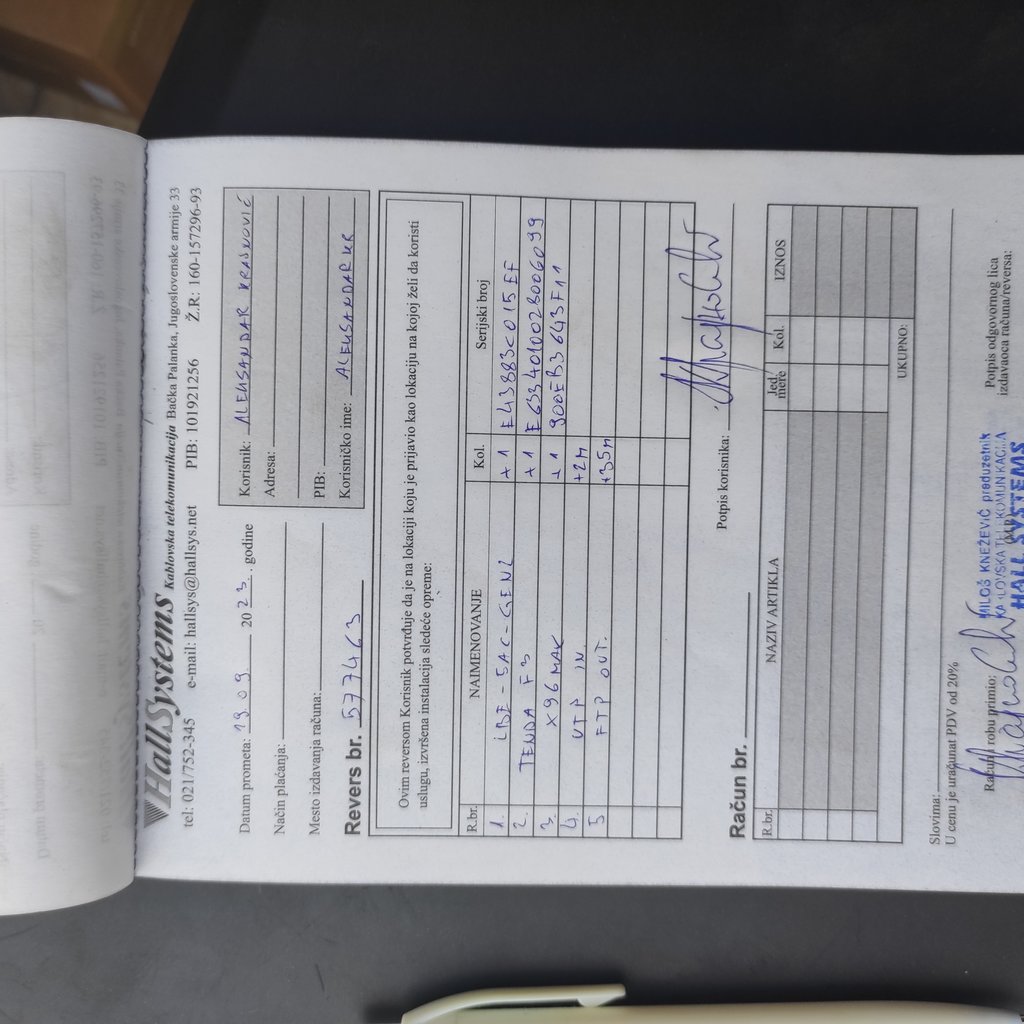 HallSystems Kablovska telekomunikacija Bačka Palanka, Jugoslovenske armije 33
tel: 021/752-345 e-mail: hallsys@hallsys.net PIB: 101921256 Ž.R: 160-157296-93
Datum prometa: 19.09 2023. godine
Način plaćanja:
Mesto izdavanja računa:
Revers br. 577463
Korisnik: ALEKSANDAR KRASNOVIĆ
Adresa:
PIB:
Korisničko ime: ALEKSANDAR KR
Ovim reversom Korisnik potvrđuje da je na lokaciji koju je prijavio kao lokaciju na kojoj želi da koristi
uslugu, izvršena instalacija sledeće opreme:
R.br. NAIMENOVANJE Kol. Serijski broj
1. LBE-5AC-GEN2 +1 E43883C015EF
2. TENDA F3 +1 E6334010028006099
3. X96 MAX +1 900EB3643F11
4. UTP IN +2M
5 FTP OUT. +35M
Potpis korisnika:
Račun br.
R.br. NAZIV ARTIKLA Jed. mere Kol. IZNOS
UKUPNO:
Slovima:
U cenu je uračunat PDV od 20%
Račun i robu primio:
Potpis odgovornog lica
izdavaoca računa/reversa:
MILOŠ KNEŽEVIĆ preduzetnik
KABLOVSKA TELEKOMUNIKACIJA
HALL SYSTEMS